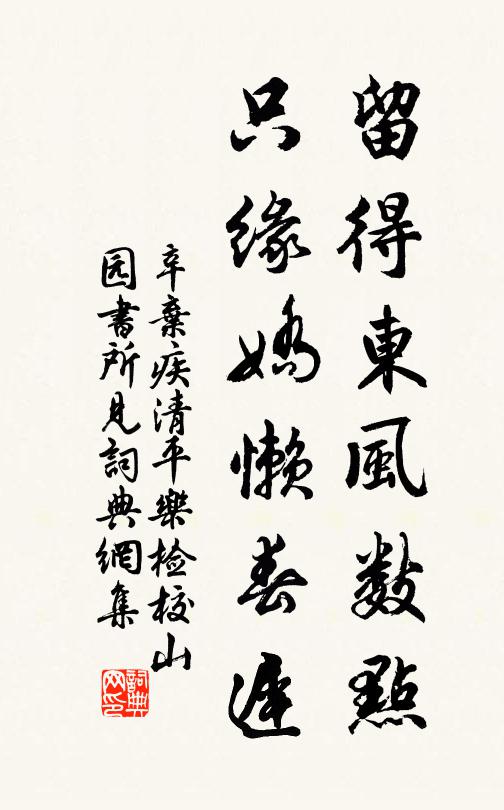 留得東風數點
只緣嬌懶春遲
辛棄疾清平樂檢校山
园書所見詞典網集
詞典网印